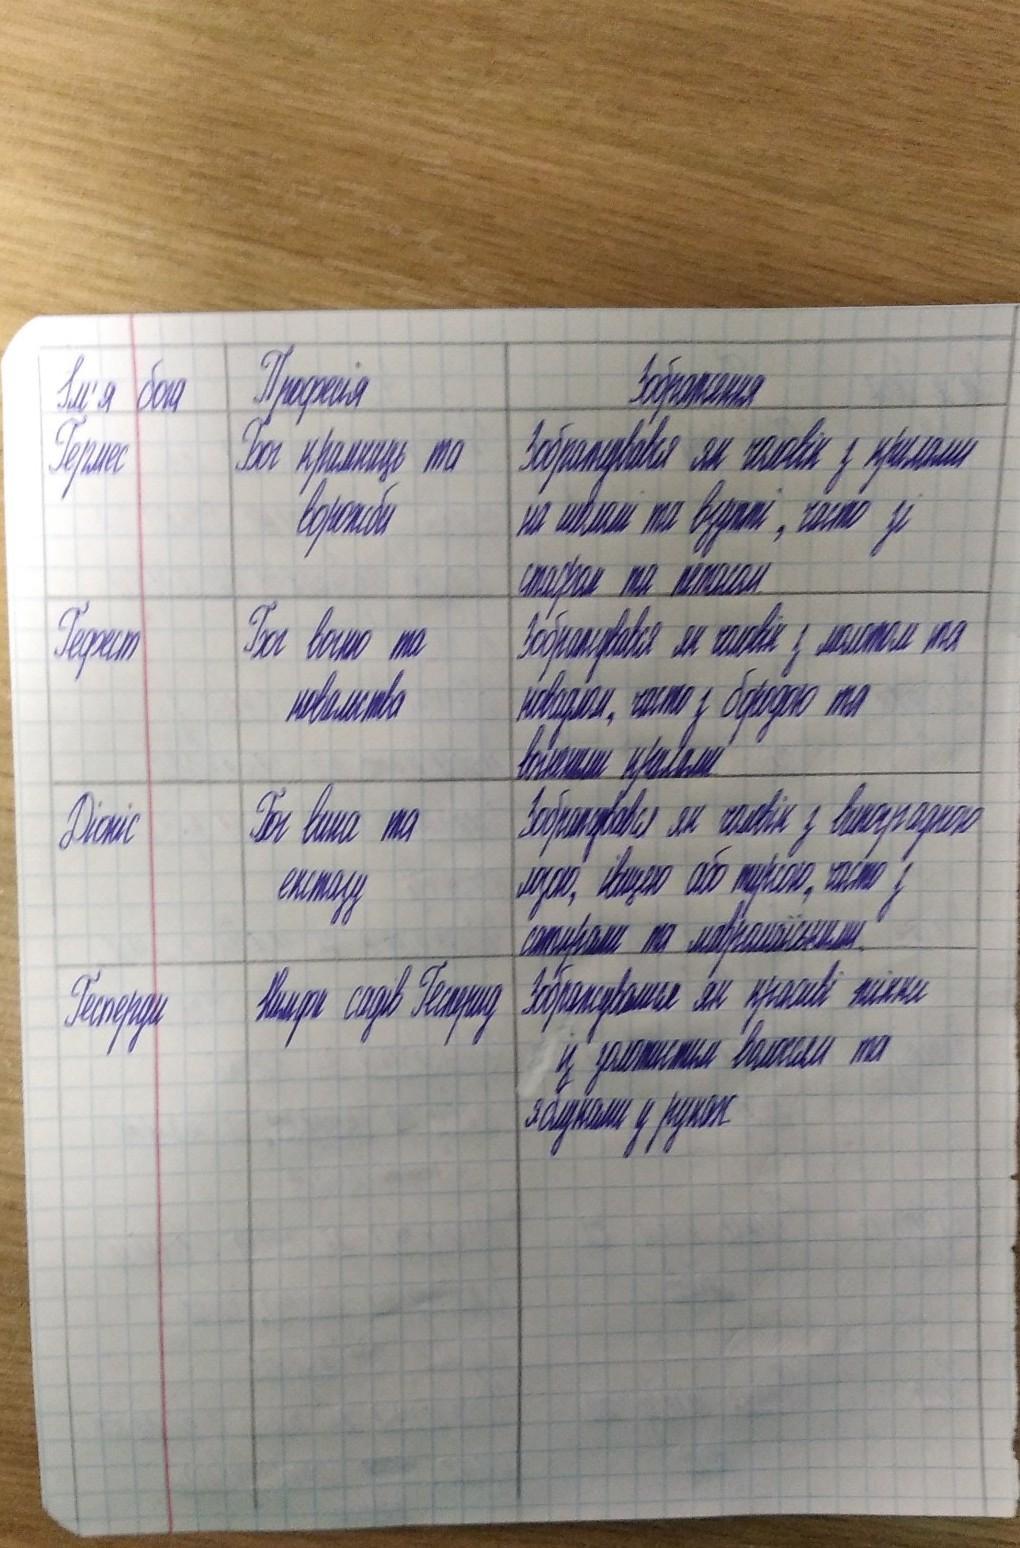 Ім'я бога Професія Зображення
Гермес Бог крамниць та Зображувався як чоловік з крилами
ворожби на шоломі та взутті, часто зі
стафом та петасом
Гефест Бог вогню та Зображувався як чоловік з молотом та
ковальства ковадлом, часто з бородою та
вогненими крилами
Діоніс Бог вина та Зображувався як чоловік з виноградною
екстазу лозою, або тирсою, часто з
сатирами та
Гесперди Німфи садів Гесперид Зображувалися як красиві жінки
із золотистим волоссям та
яблуками у руках